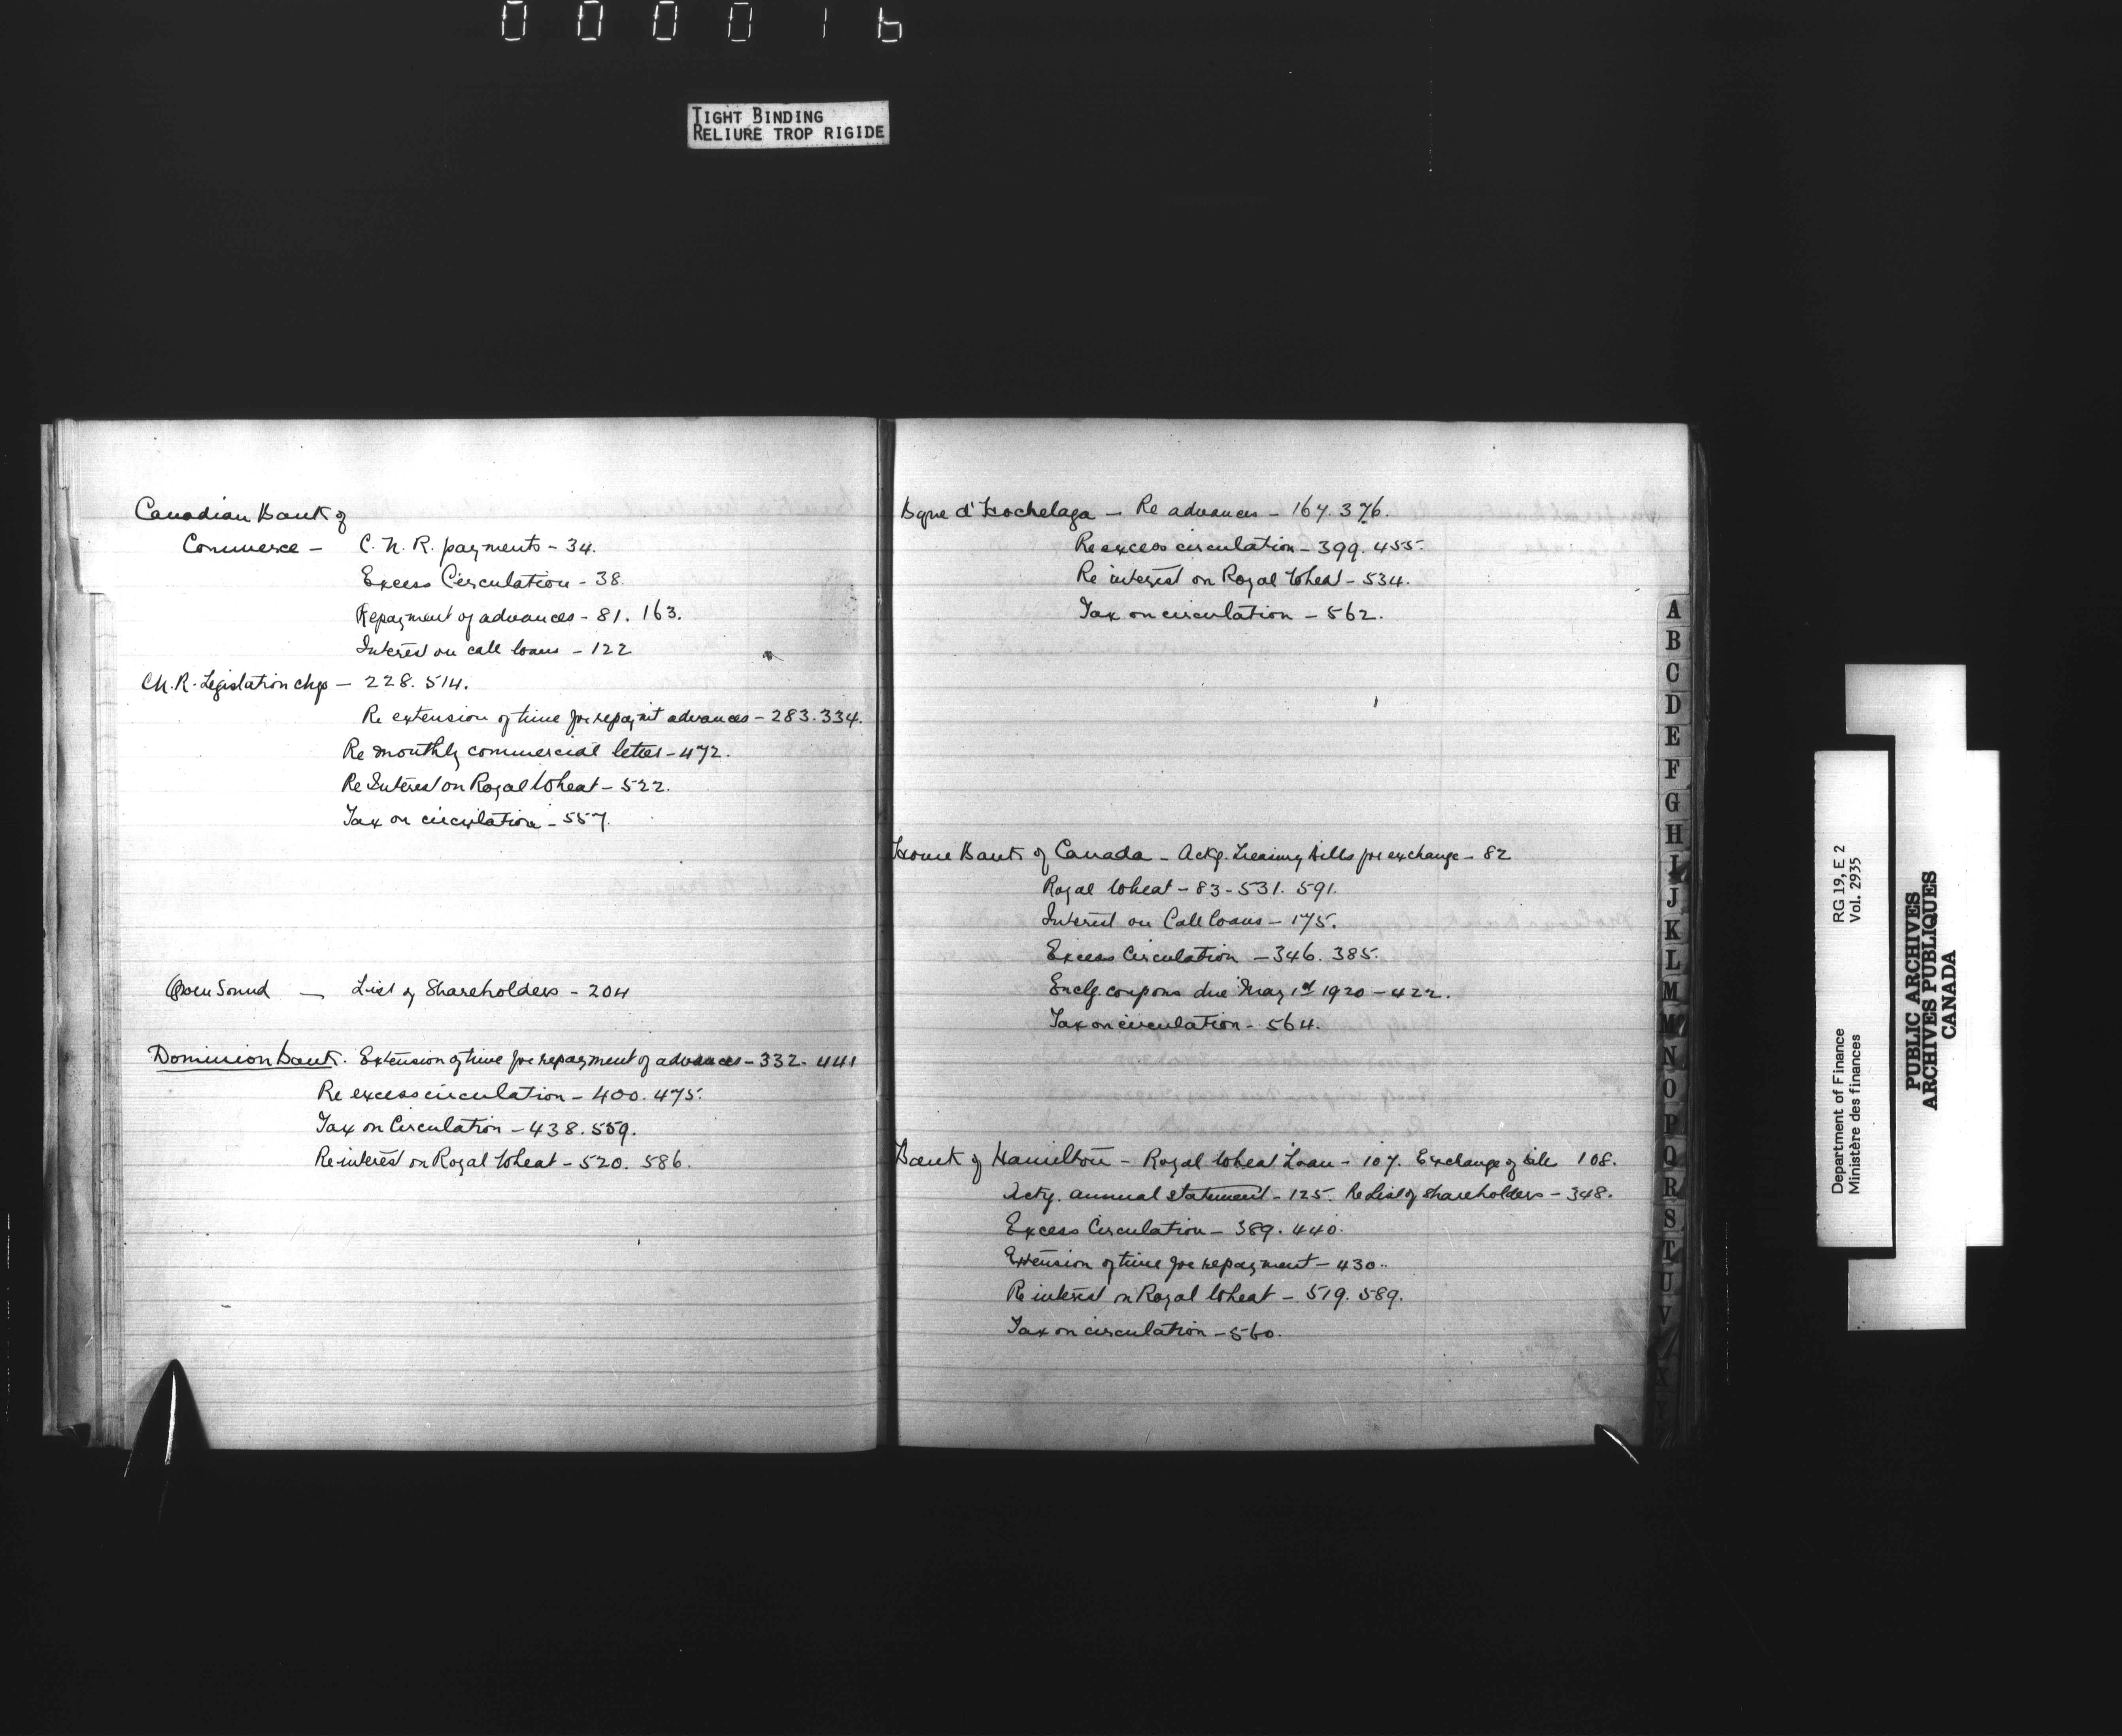 000016
TIGHT BINDING
RELIURE TROP RIGIDE
Canadian Bank of
Commerce — C. N. R. payments - 34.
Excess Circulation - 38.
Repayment of advances - 81. 163.
Interest on call loans - 122
C.N.R. Legislation chgs — 228. 514.
Re extension of time for repaymt advances - 283. 334.
Re monthly commercial letter - 472.
Re Interest on Royal Wheat - 522.
Tax on circulation - 557.
Owen Sound — List of Shareholders - 204
Dominion Bank. Extension of time for repayment of advances - 332. 441
Re excess circulation - 400. 475.
Tax on Circulation - 438. 559.
Re interest on Royal Wheat - 520. 586.
Bque d'Hochelaga — Re advances - 167. 376.
Re excess circulation - 399. 455.
Re interest on Royal Wheat - 534.
Tax on circulation - 562.
Home Bank of Canada - Ackg. Treasury Bills for exchange - 82
Royal Wheat - 83 - 531. 591.
Interest on Call loans - 175.
Excess Circulation - 346. 385.
Enclg. coupons due May 1st 1920 - 422.
Tax on circulation - 564.
Bank of Hamilton - Royal Wheat Loan - 107. Exchange of bills 108.
Ackg. annual statement - 125. Re List of Shareholders - 348.
Excess Circulation - 389. 440.
Extension of time for repayment - 430.
Re interest on Royal Wheat - 519. 589.
Tax on circulation - 560.
A
B
C
D
E
F
G
H
I
J
K
L
M
Mc
N
O
P
Q
R
S
T
U
V
RG 19, E 2
Vol. 2935
Department of Finance
Ministère des finances
PUBLIC ARCHIVES
ARCHIVES PUBLIQUES
CANADA